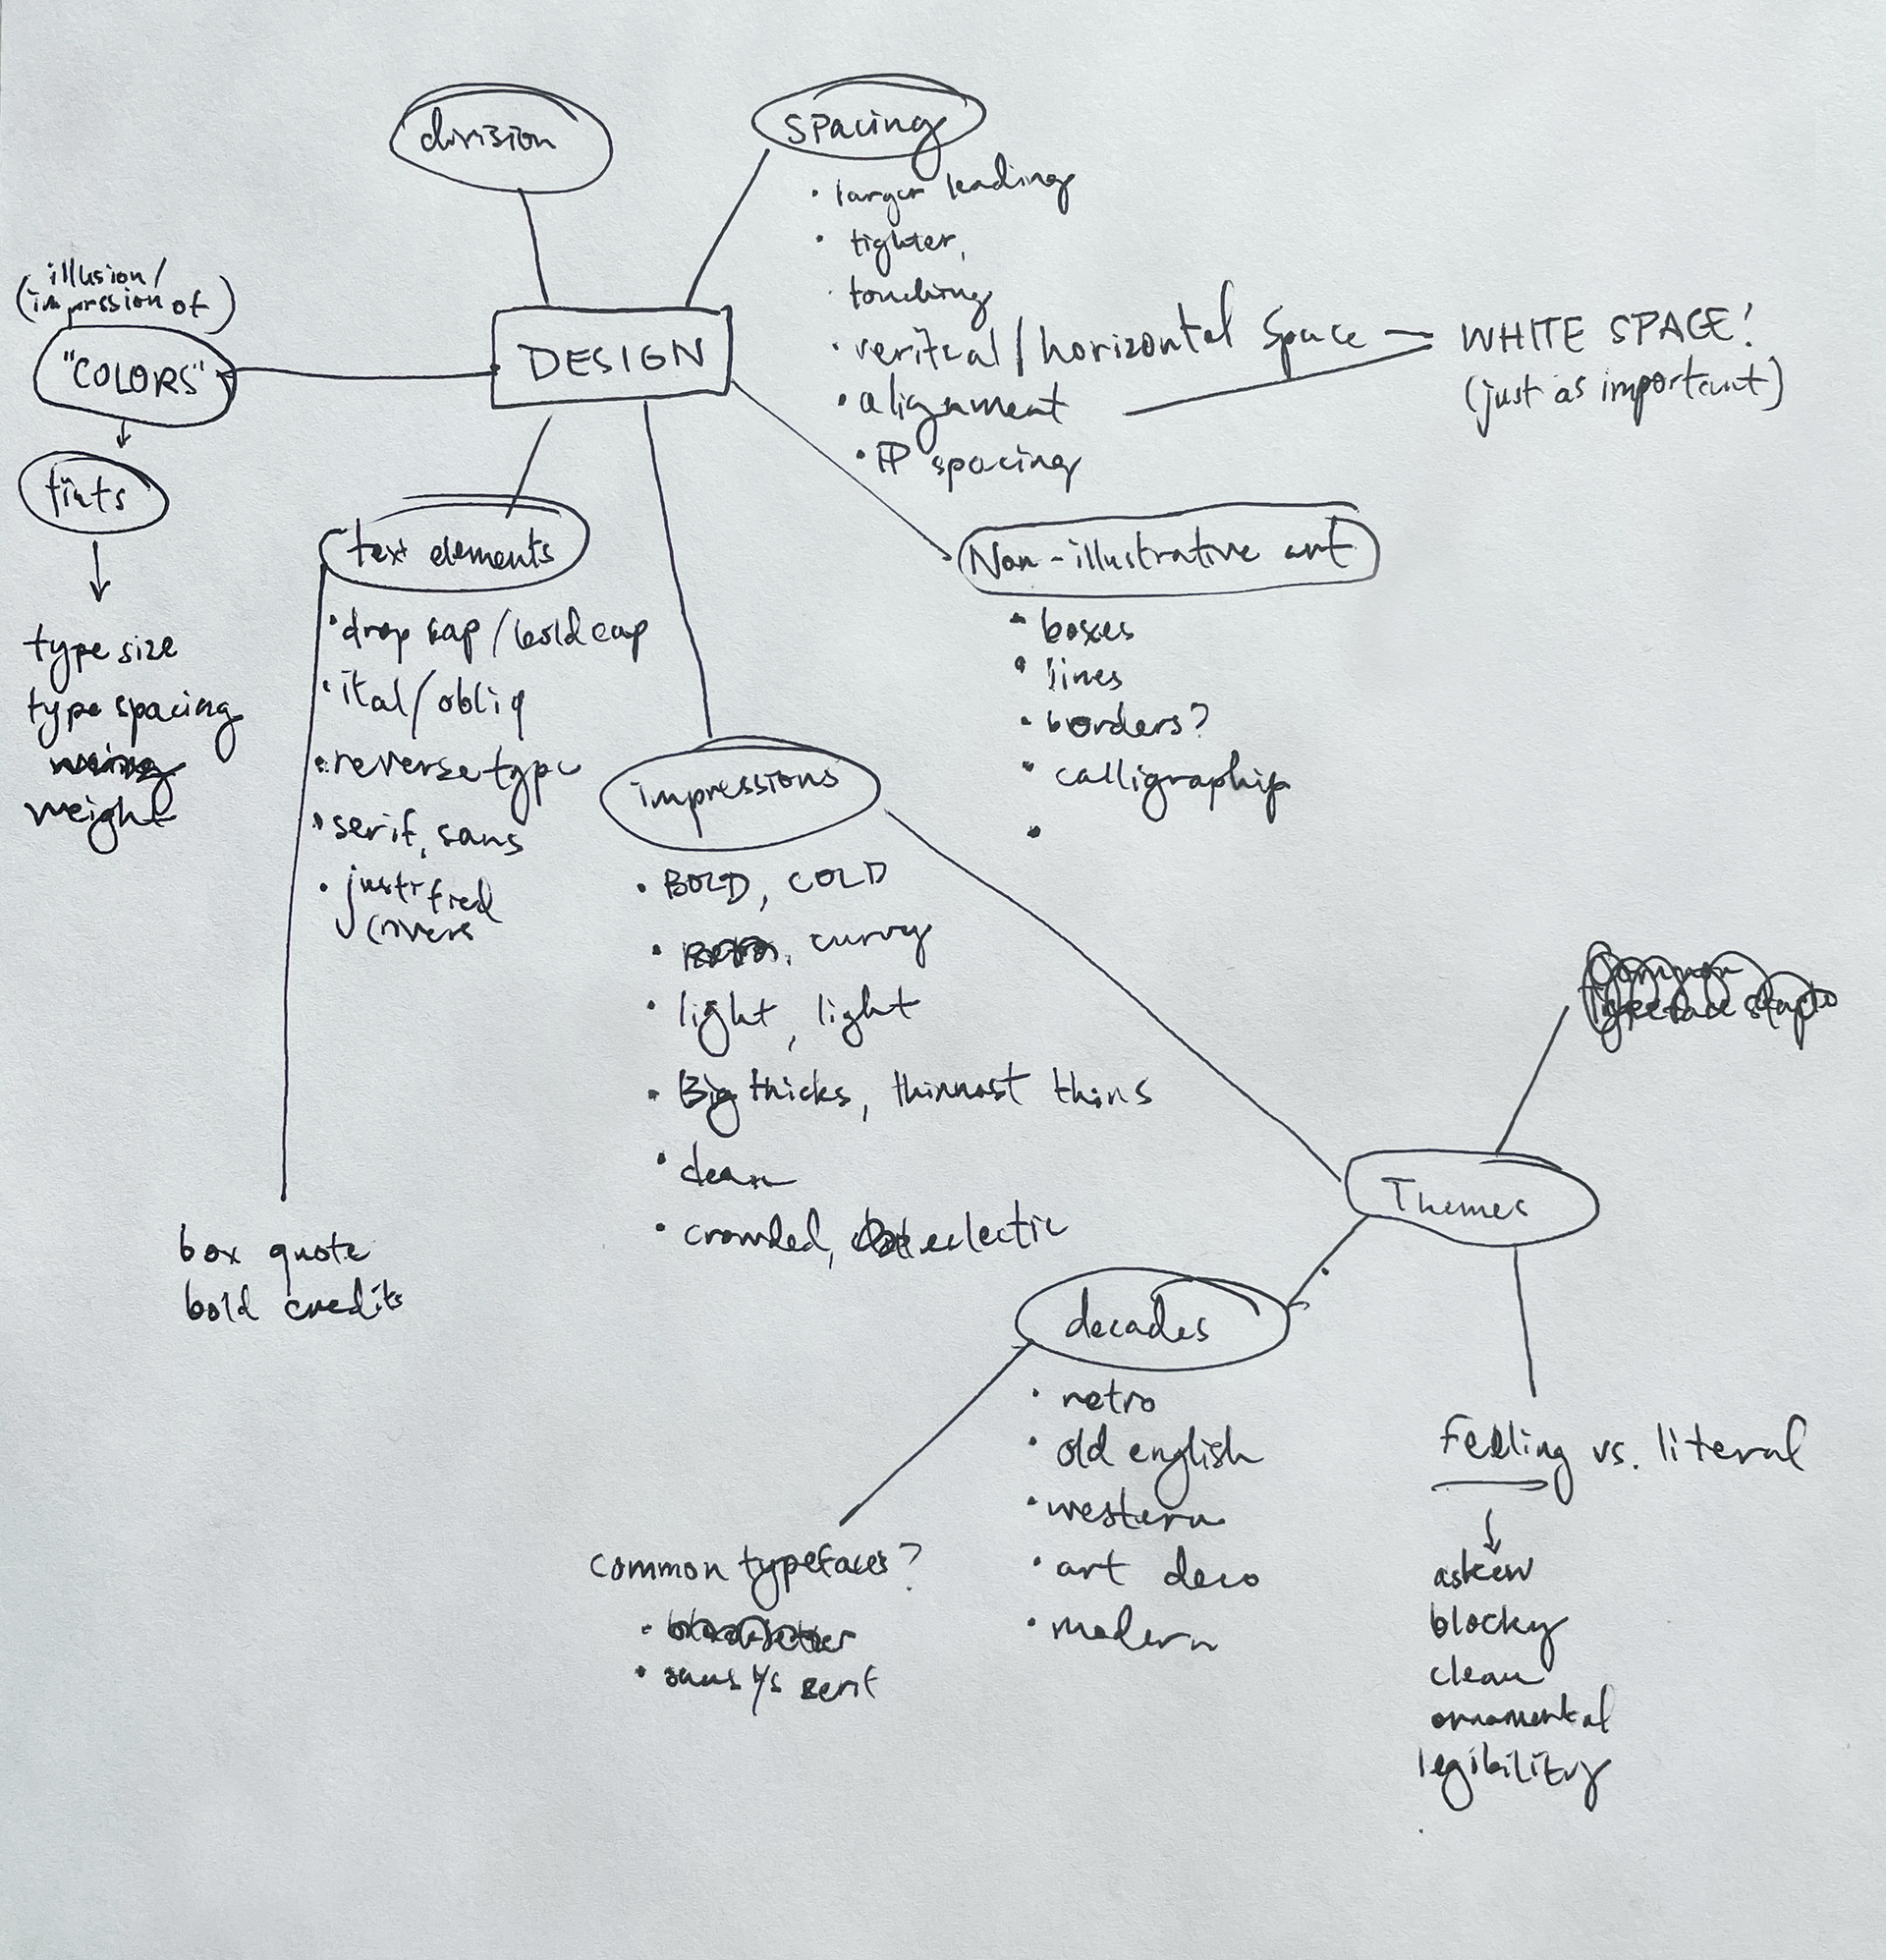 division
spacing
• larger leading
• tighter,
touching
• veritcal / horizontal space
• alignment
• IP spacing
WHITE SPACE!
(just as important)
(illusion/
impression of)
"COLORS"
tints
type size
type spacing
weight
DESIGN
text elements
• drop cap / bold cap
• ital/obliq
• reverse type
• serif, sans
• justified
rivers
box quote
bold credits
Non-illustrative art
• boxes
• lines
• borders?
• calligraphic
•
impressions
• BOLD, COLD
• curvy
• light, light
• Big thicks, thinnest thins
• clean
• crowded, eclectic
Themes
decades
• retro
• old english
• western
• art deco
• modern
common typefaces?
• sans v/s serif
Feeling vs. literal
askew
blocky
clean
ornamental
legibility